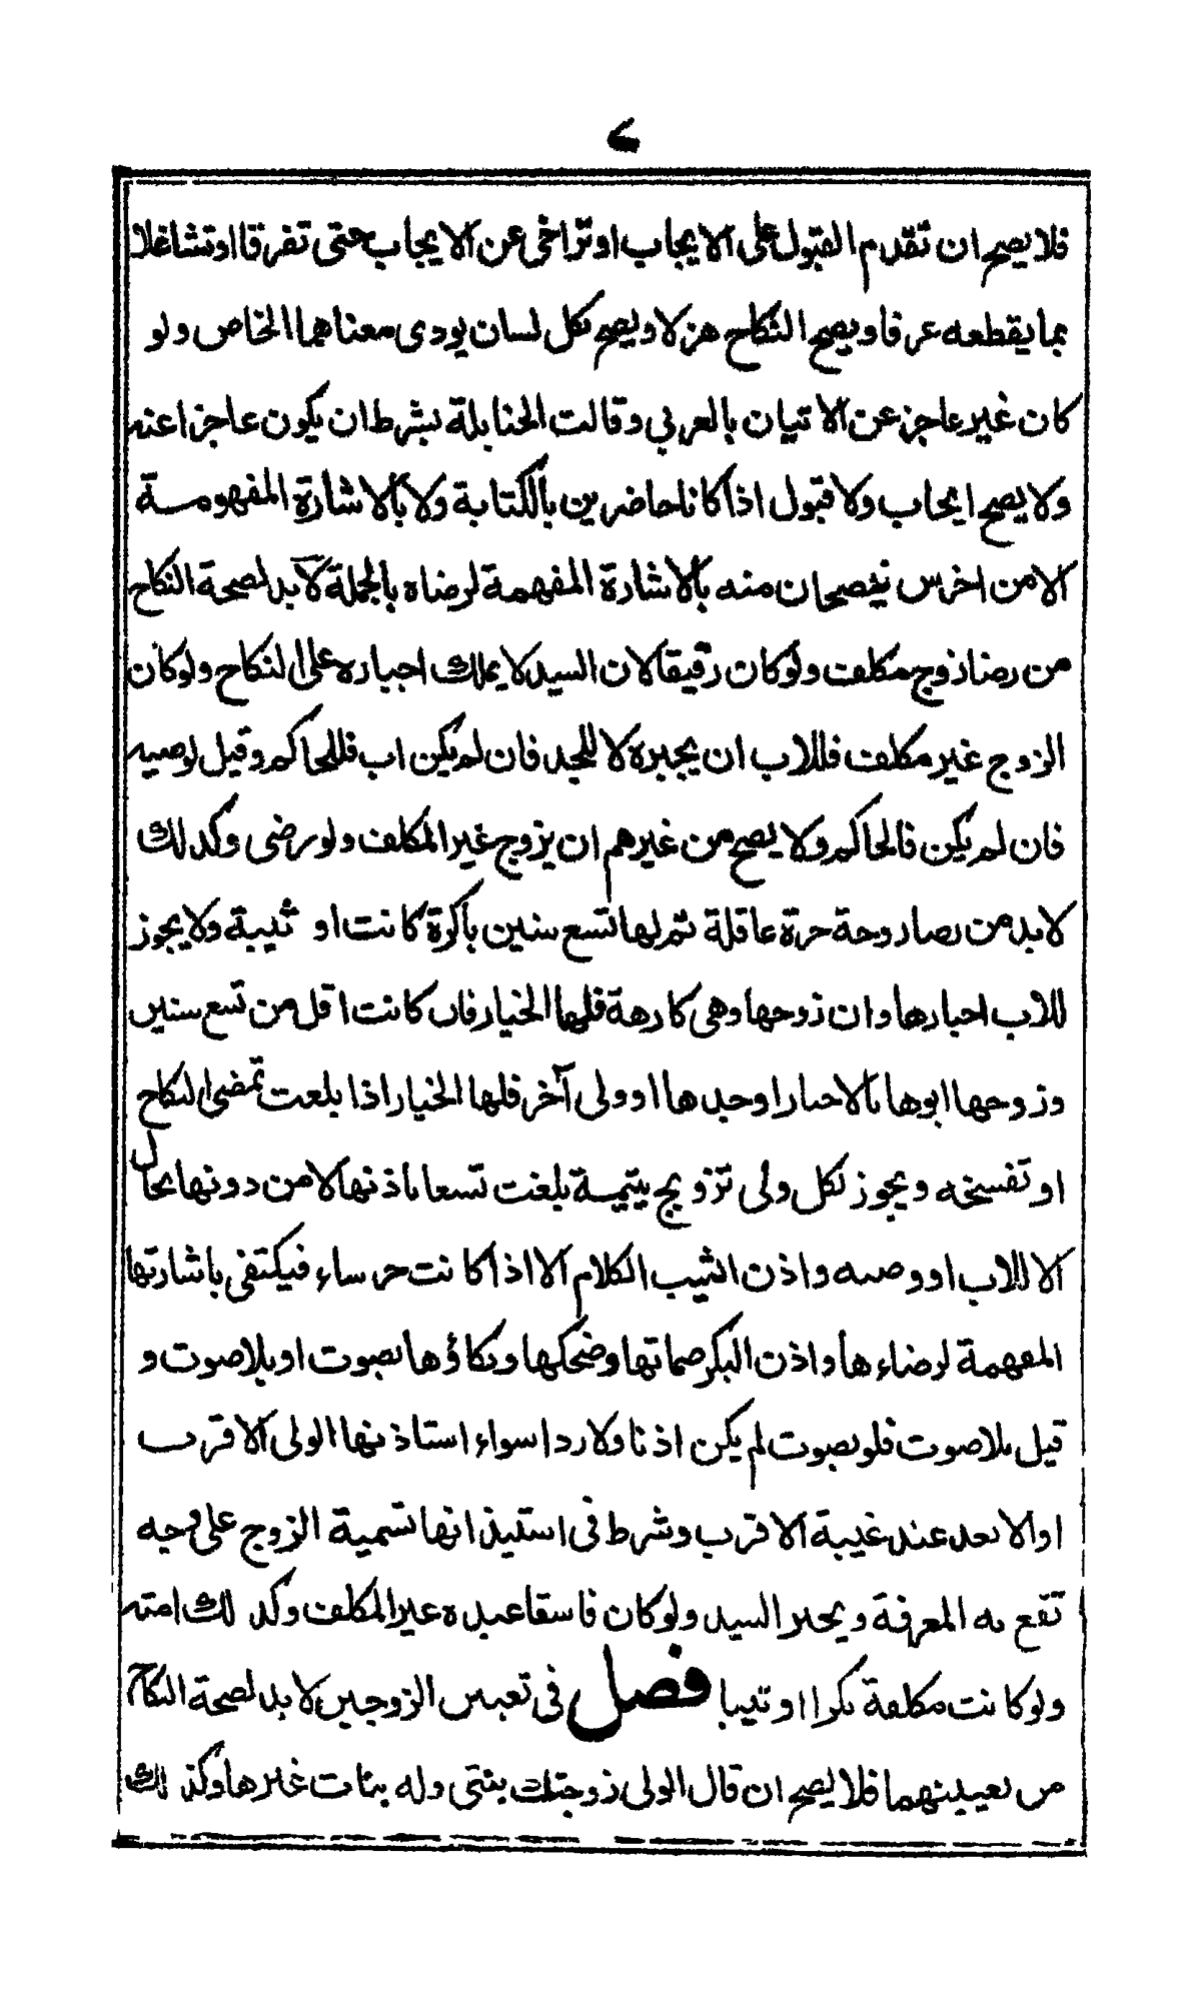 ۷
فلا يصح ان تقدم القبول على الايجاب او تراخى عن الايجاب حتى تفرقا او تشاغلا
بما يقطعه عرفا ويصح النكاح هزلا ويصح بكل لسان يودى معناهما الخاص ولو
كان غير عاجز عن الاتيان بالعربي وقالت الحنابلة بشرط ان يكون عاجزا عنه
ولا يصح ايجاب ولا قبول اذا كانا حاضرين بالكتابة ولا بالاشارة المفهومة
الا من اخرس فيصحان منه بالاشارة المفهمة لرضاه بالجملة لآبد لصحة النكاح
من رضا زوج مكلف ولو كان رقيقا لان السيد لا يملك اجباره على النكاح ولو كان
الزوج غير مكلف فللاب ان يجبره لا للجد فان لم يكن اب فللحاكم وقيل لوصيه
فان لم يكن فالحاكم ولا يصح من غيرهم ان يزوج غير المكلف ولو رضى وكذلك
لابد من رضا زوجة حرة عاقلة ثم لها تسع سنين باكرة كانت او ثيبة ولا يجوز
للاب اجبارها وان زوجها وهى كارهة فلها الخيار فان كانت اقل من تسع سنين
وزوجها ابوها بالاجبار او جدها او ولى آخر فلها الخيار اذا بلغت تمضى النكاح
او تفسخه ويجوز لكل ولى تزويج يتيمة بلغت تسعا باذنها لا من دونها بحال
الا للاب او وصيه واذن الثيب الكلام الا اذا كانت خرساء فيكتفى باشارتها
المفهمة لرضاءها واذن البكر صماتها وضحكها وبكاؤها بصوت او بلا صوت و
قيل بلا صوت فلو بصوت لم يكن اذنا ولا ردا سواء استاذنها الولى الاقرب
او الابعد عند غيبة الاقرب وشرط فى استيذانها تسمية الزوج على وجه
تقع به المعرفة ويجبر السيد ولو كان فاسقا عبده غير المكلف وكذلك امته
ولو كانت مكلفة بكرا او ثيبا فصل فى تعيين الزوجين لابد لصحة النكاح
من تعيينهما فلا يصح ان قال الولى زوجتك بنتى وله بنات غيرها وكذلك